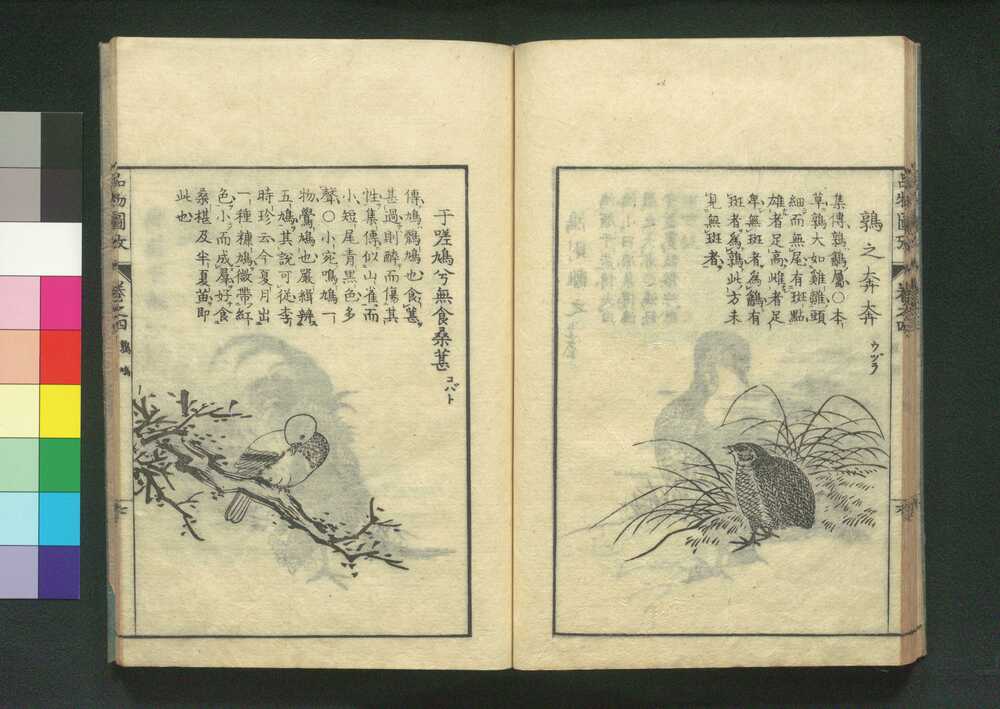 鶉之奔奔
ウヅラ
集傳鶉䳺屬〇本
草鶉大如雞雛頭
細而無尾有斑點
雄者足高雌者足
卑無斑者爲䳺有
斑者爲鶉此方未
見無斑者
于嗟鳩兮無食桑葚
コバト
傳鳩鶻鳩也食葚
甚過則醉而傷其
性集傳似山雀而
小短尾青黑色多
聲〇小宛鳴鳩一
物鷽鳩也嚴緝辨
五鳩其說可從李
時珍云今夏月出
一種糠鳩微帶紅
色小而成羣好食
桑椹及半夏苗即
此也
品物圖攷
卷之四